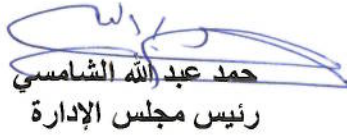 حمد عبد الله الشامسي
رئيس مجلس الإدارة